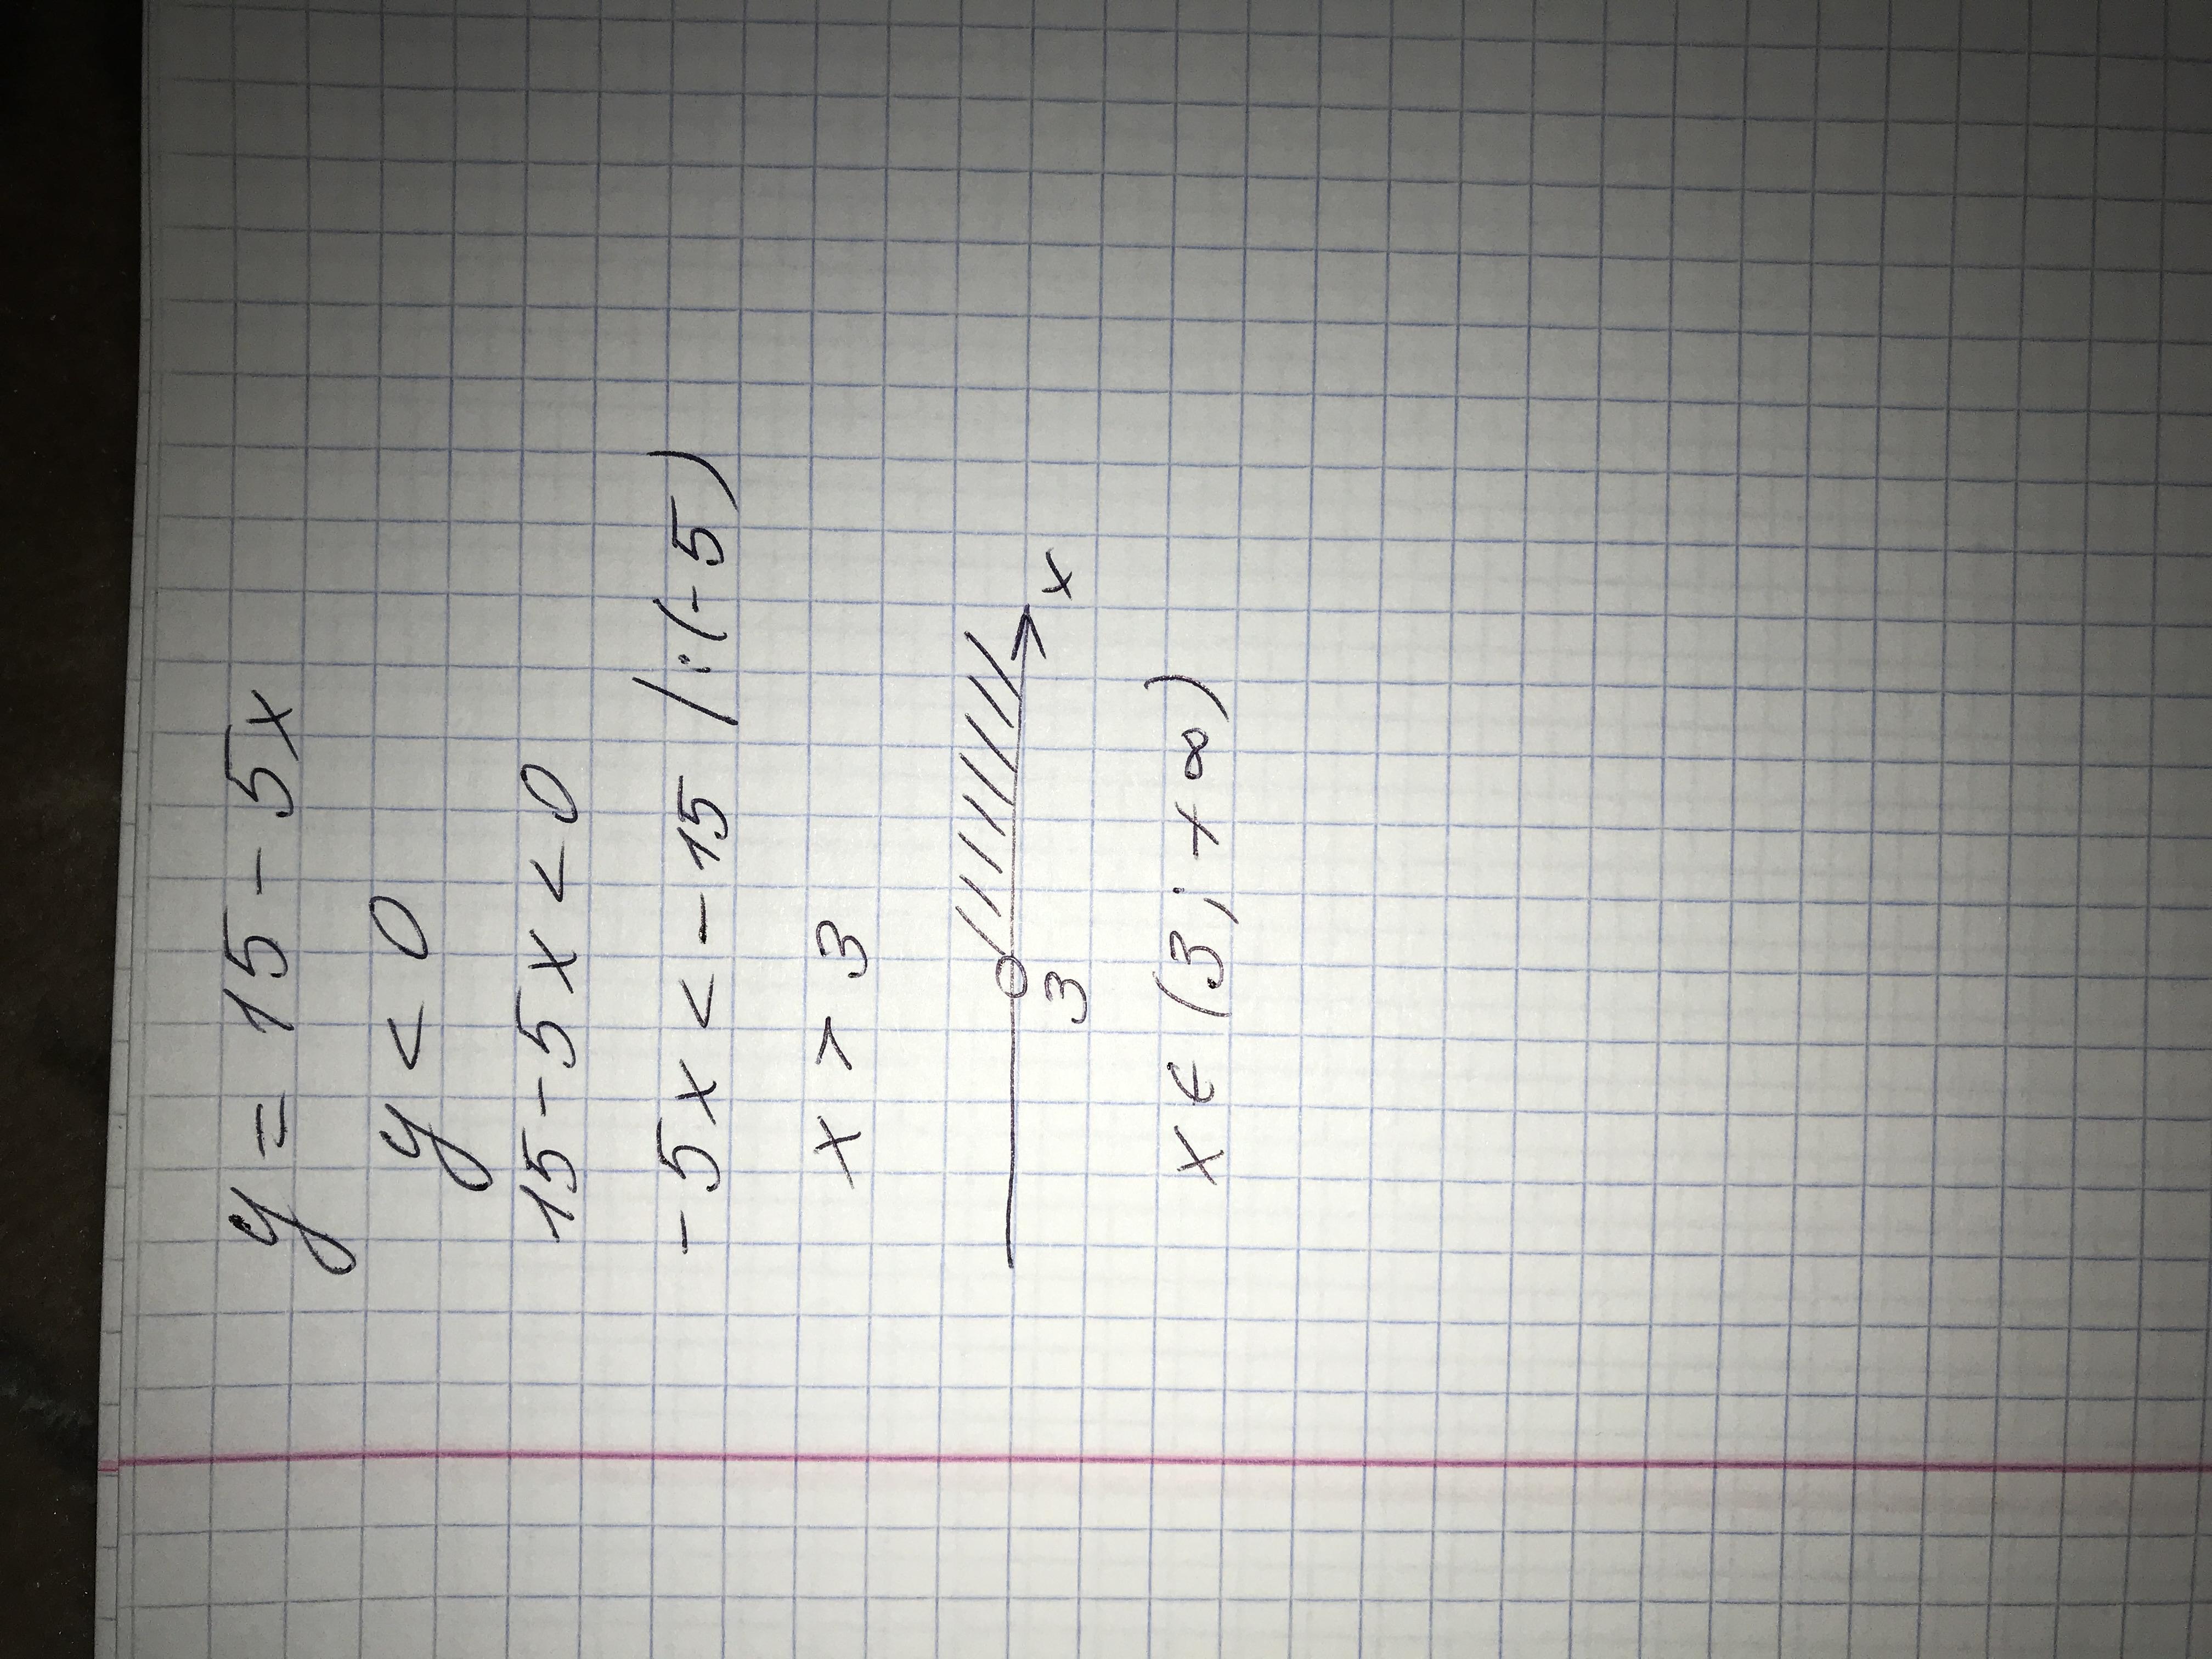 y = 15 - 5x
y < 0
15 - 5x < 0
- 5x < - 15 / : (- 5)
x > 3
3 x
x ∈ (3; + ∞)